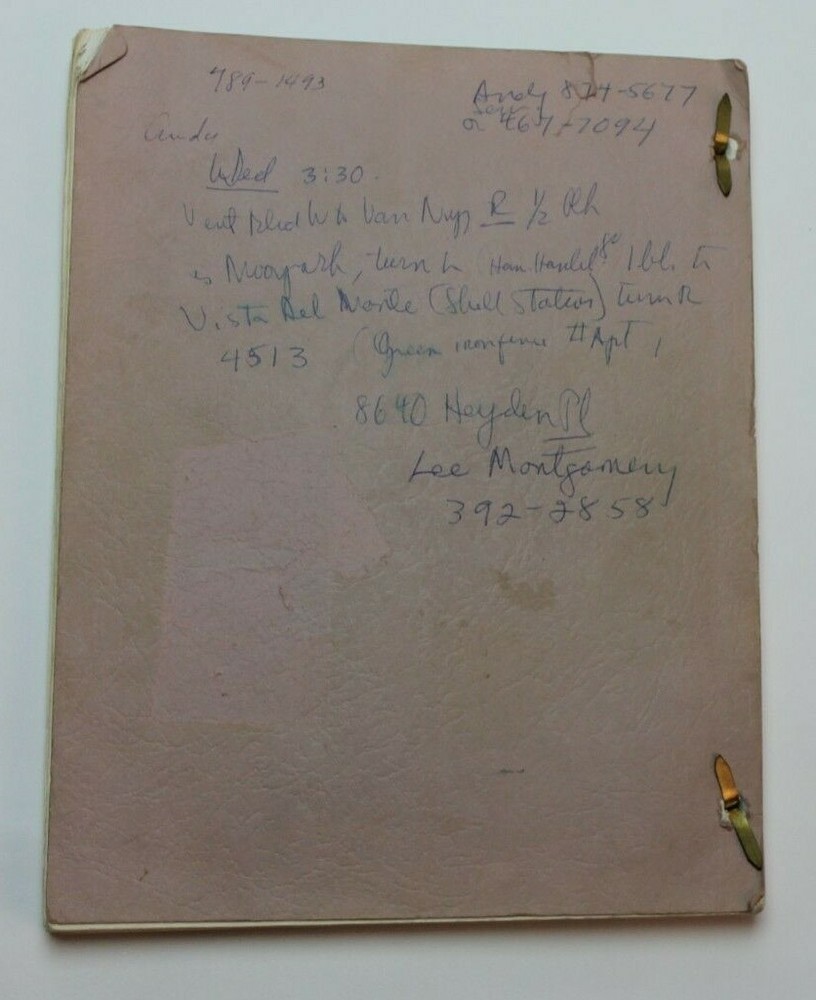 789-1493
Andy 874-5677
or 467-7094
Andy
Wed 3:30.
Vent Blvd W to Van Nuys R 1/2 Blk
is Moorpark, turn L 1 bl. to
Vista Del Monte (Shell Station) turn R
4513 (Green iron fence # Apt 1
8640 Heyden Pl
Lee Montgomery
392-2858